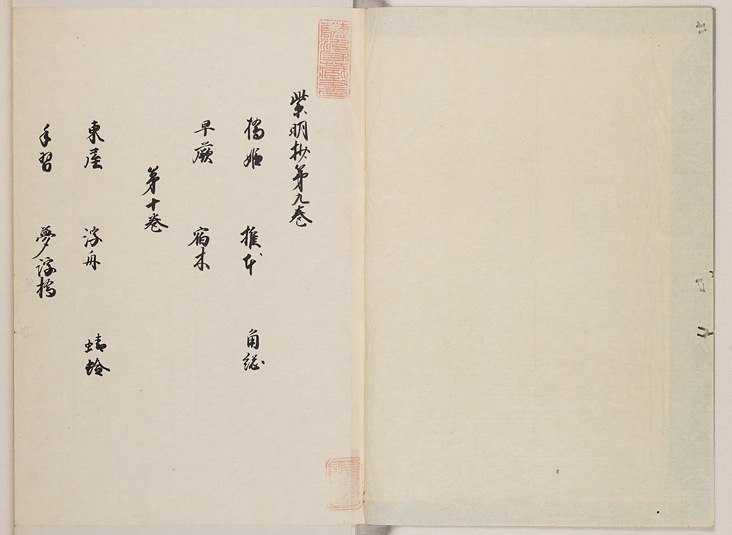 紫明抄第九巻
橋姫 椎本 角総
早蕨 宿木
第十巻
東屋 浮舟 蜻蛉
手習 夢浮橋